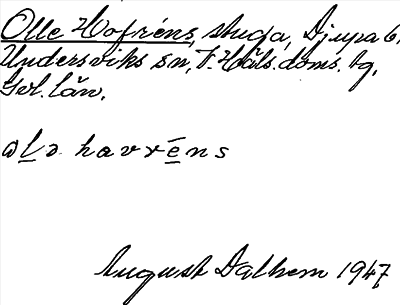 Olle Hofréns, stuga, Djupa 6,
Undersviks sn, V. Häls. doms. tg,
Gvl. län.
olɔ havrēns
August Dalhem 1947